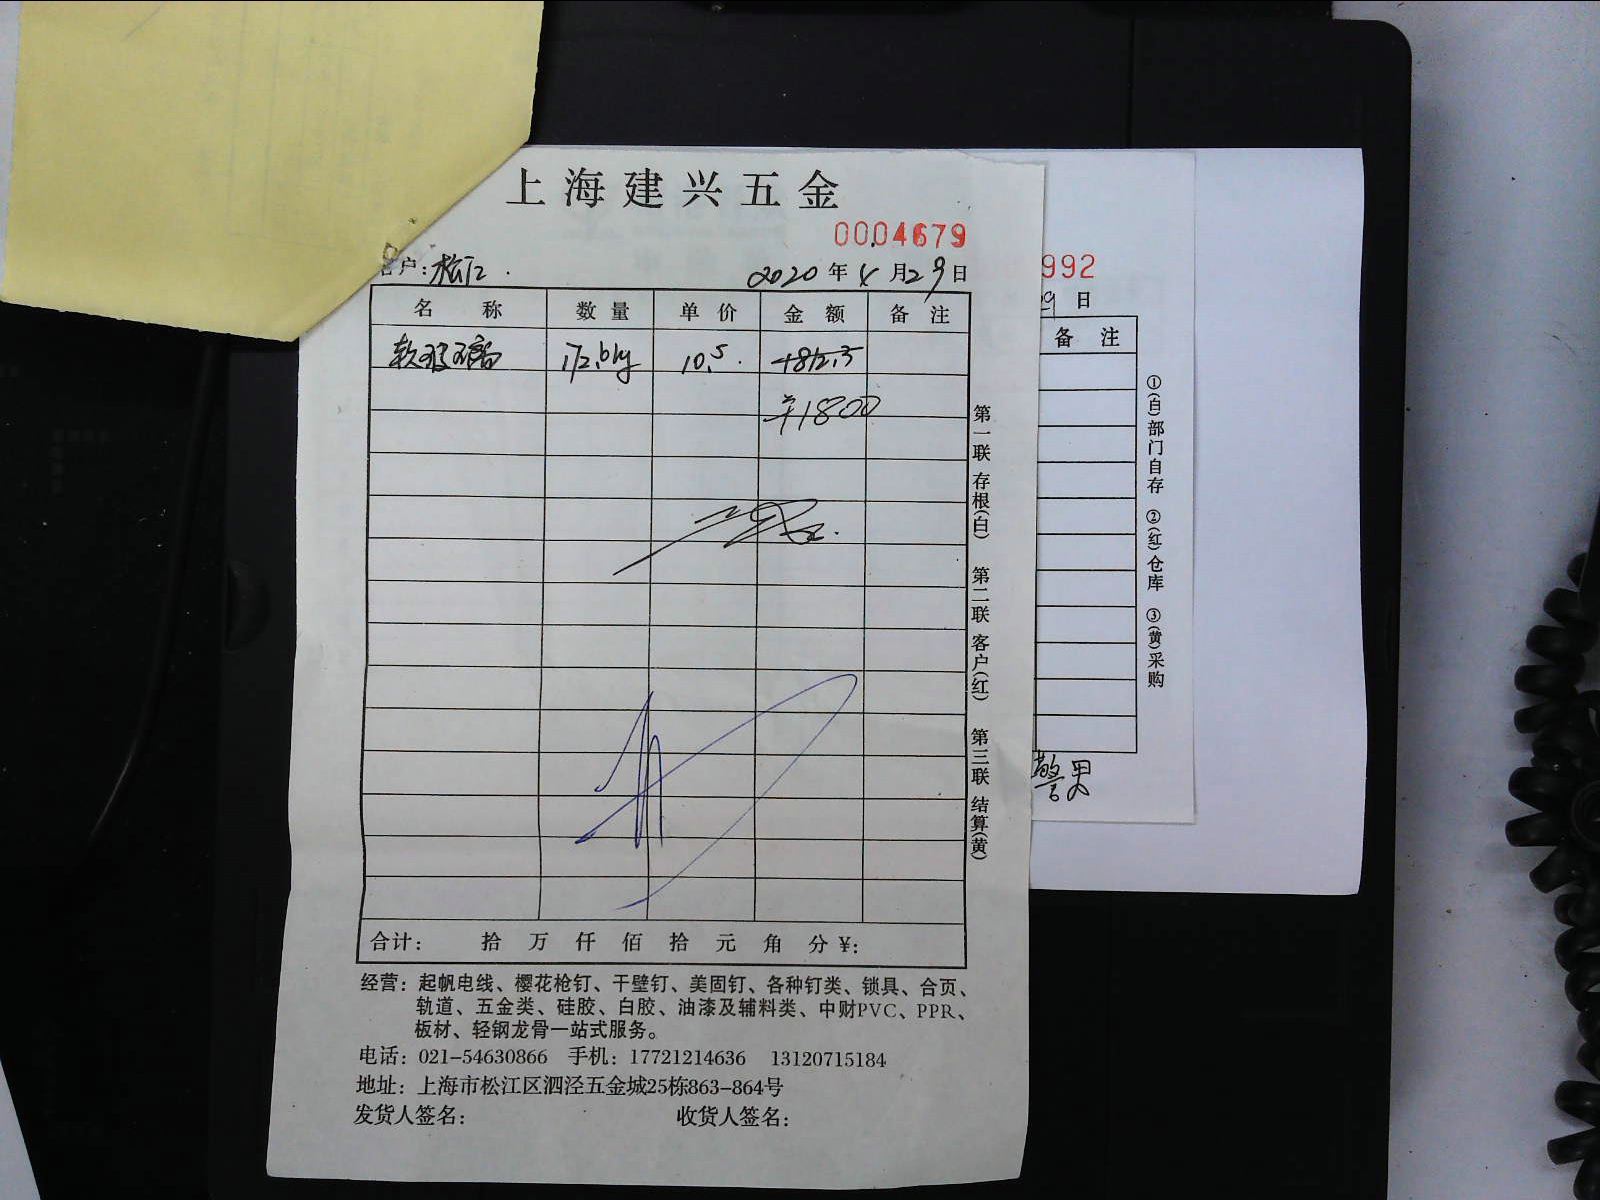 上海建兴五金
0004679
客户：松江.
2020年4月29日
名称 数量 单价 金额 备注
软玻璃 172.6kg 10.5. 1812.3
¥1800
第一联 存根(白) 第二联 客户(红) 第三联 结算(黄)
合计： 拾 万 仟 佰 拾 元 角 分 ¥:
经营：起帆电线、樱花枪钉、干壁钉、美固钉、各种钉类、锁具、合页、
轨道、五金类、硅胶、白胶、油漆及辅料类、中财PVC、PPR、
板材、轻钢龙骨一站式服务。
电话：021-54630866 手机：17721214636 13120715184
地址：上海市松江区泗泾五金城25栋863-864号
发货人签名： 收货人签名：
992
29日
备注
①(自)部门自存 ②(红)仓库 ③(黄)采购